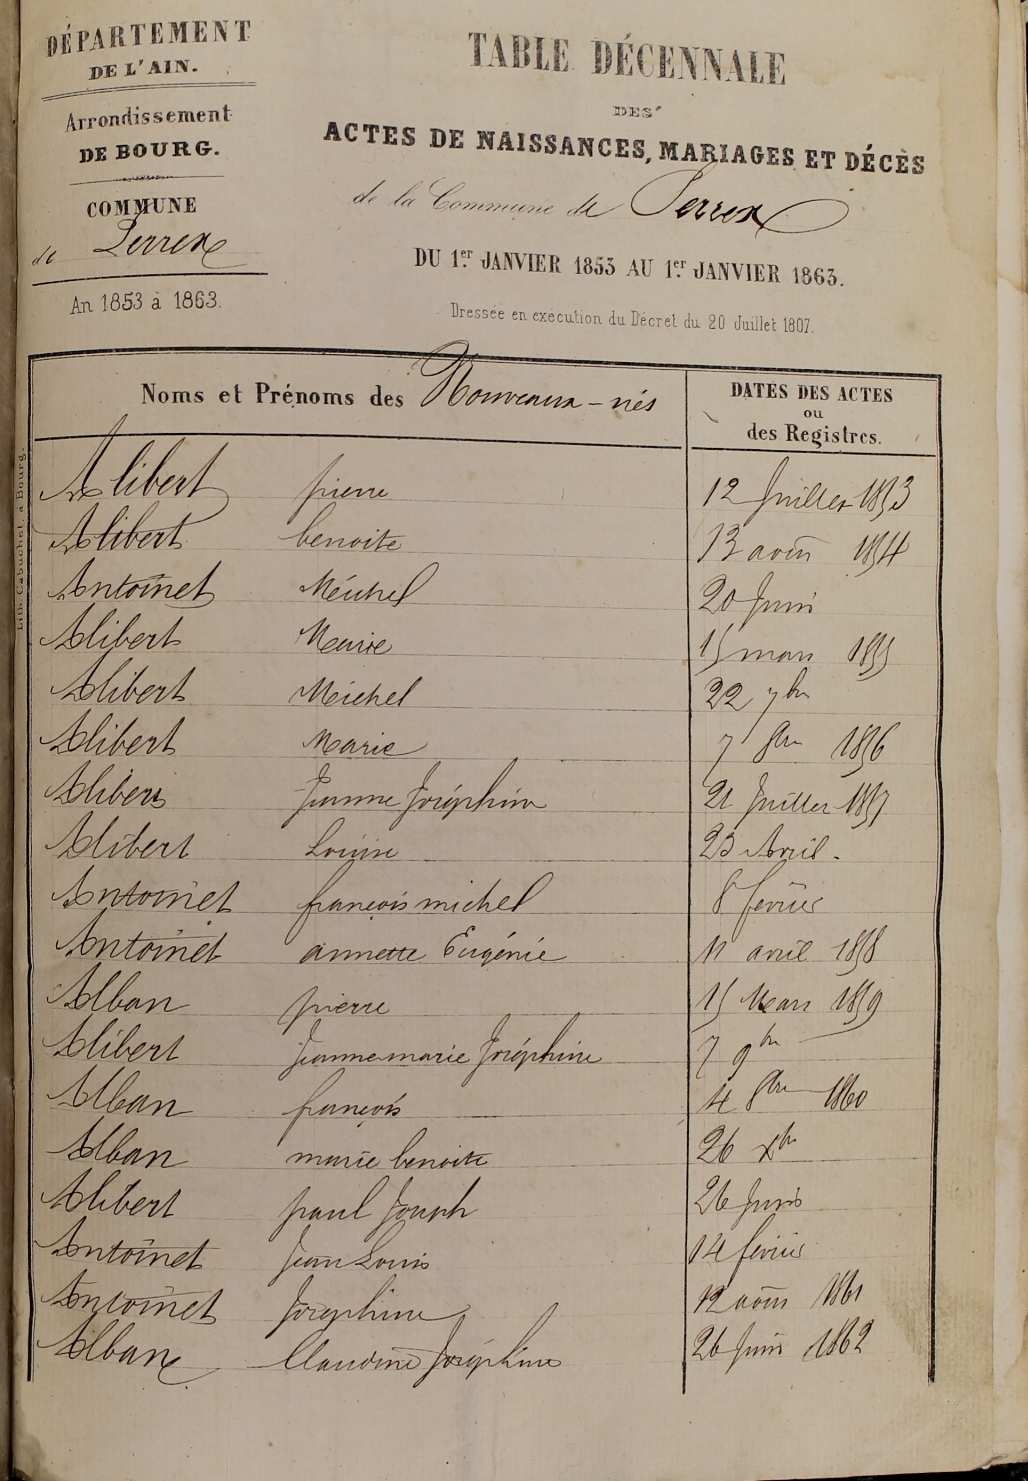 DÉPARTEMENT
DE L'AIN.
Arrondissement
DE BOURG.
COMMUNE
de Perrex
An 1853 à 1863.
TABLE DÉCENNALE
DES
ACTES DE NAISSANCES, MARIAGES ET DÉCÈS
de la Commune de Perrex
DU 1er JANVIER 1853 AU 1er JANVIER 1863.
Dressée en exécution du Décret du 20 Juillet 1807.
Noms et Prénoms des Nouveaux-nés DATES DES ACTES
ou
des Registres.
Lith. Cabuchet, a Bourg.
Alibert pierre 12 Juillet 1853
Alibert benoite 13 août 1854
Antoinet Michel 20 Juin
Alibert Marie 15 mars 1855
Alibert Michel 22 7bre
Alibert Marie 7 8bre 1856
Alibert Jeanne Joséphine 21 Juillet 1857
Alibert Louise 23 Avril.
Antoinet françois michel 8 février
Antoinet annette Eugénie 11 avril 1858
Alban pierre 15 Mars 1859
Alibert Jeanne marie Joséphine 7 9bre
Alban françois 4 8bre 1860
Alban marie benoite 26 Xbre
Alibert paul Joseph 26 Juin
Antoinet Jean Louis 14 février
Antoinet Joséphine 12 août 1861
Alban Claudine Joséphine 26 Juin 1862